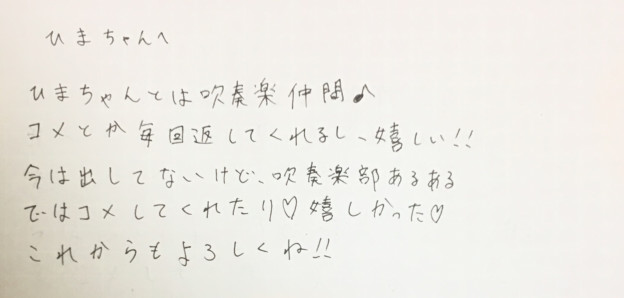 ひまちゃんへ
ひまちゃんとは吹奏楽仲間♪
コメとか毎回返してくれるし、嬉しい!!
今は出してないけど、吹奏楽部あるある
ではコメしてくれたり♡嬉しかった♡
これからもよろしくね!!